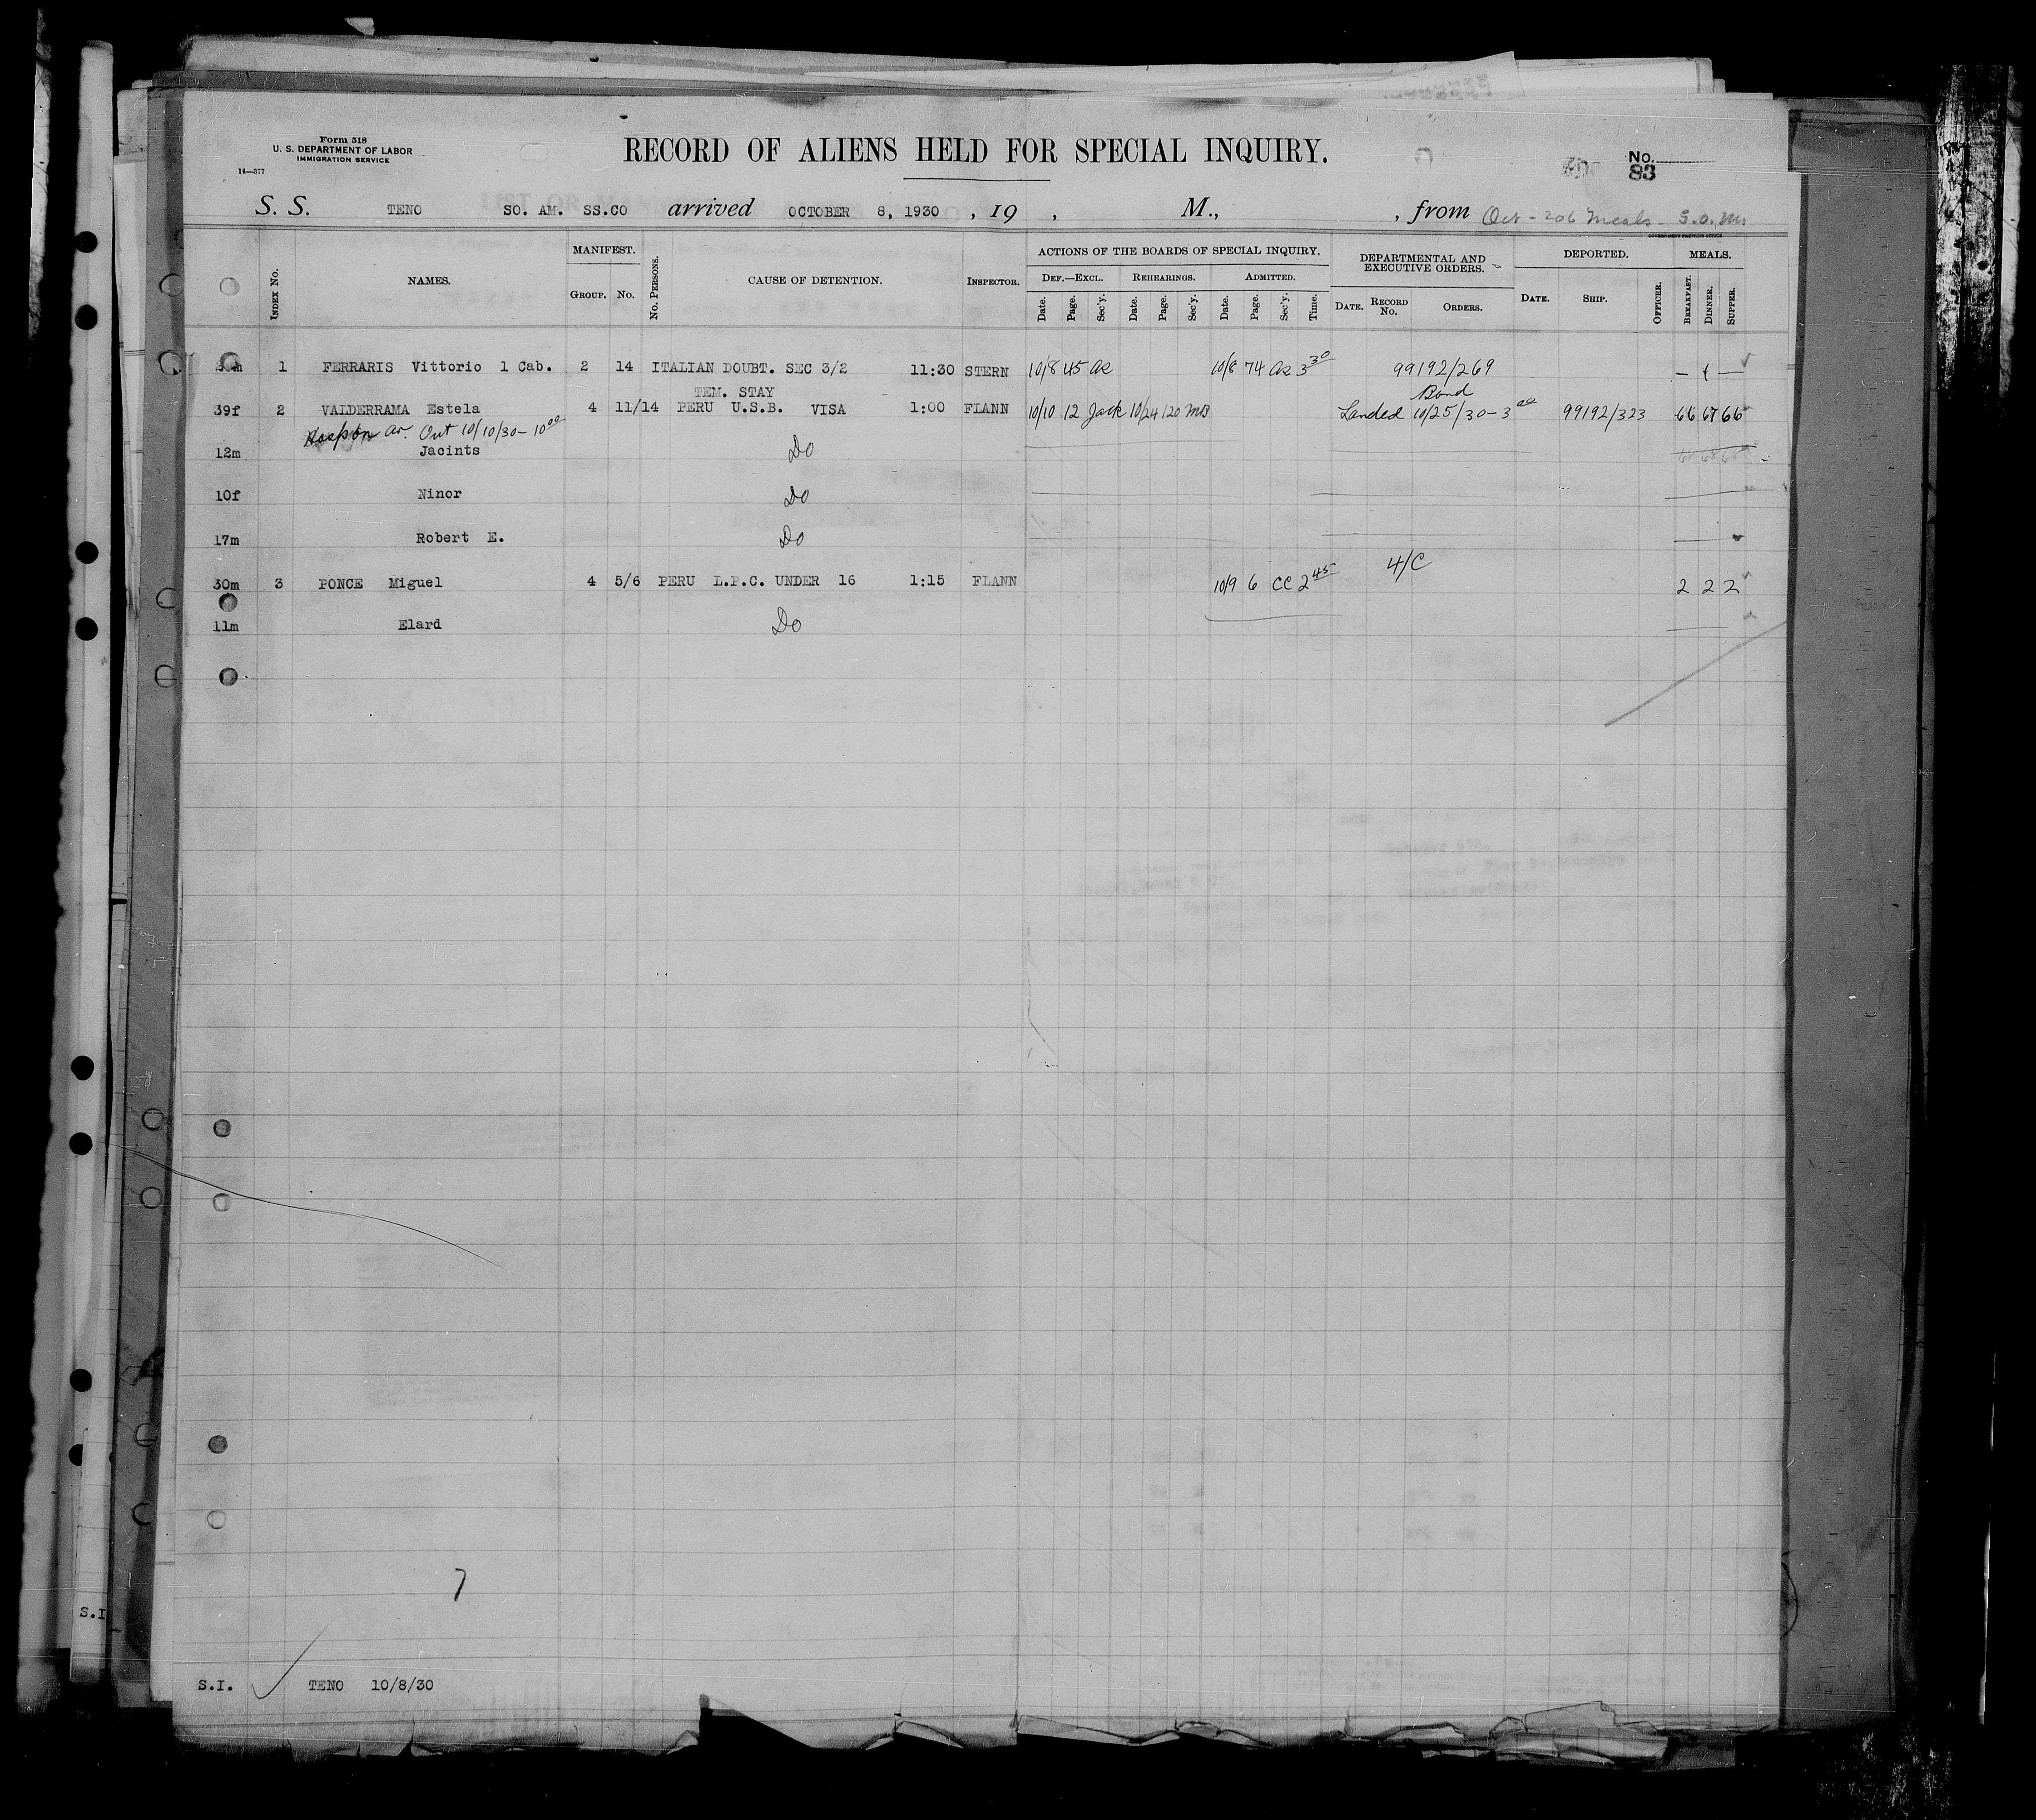 Form 518
U. S. DEPARTMENT OF LABOR
IMMIGRATION SERVICE
14—377
RECORD OF ALIENS HELD FOR SPECIAL INQUIRY.
No.
83
S. S. TENO SO. AM. SS.CO arrived OCTOBER 8, 1930 , 19 , M., , from Oct - 206 Meals - S.O.
GOVERNMENT PRINTING OFFICE
INDEX No. NAMES. MANIFEST. GROUP. No. No. PERSONS. CAUSE OF DETENTION. INSPECTOR. ACTIONS OF THE BOARDS OF SPECIAL INQUIRY. DEPARTMENTAL AND EXECUTIVE ORDERS. DEPORTED. MEALS.
DEF.—EXCL. REHEARINGS. ADMITTED.
Date. Page. Sec'y. Date. Page. Sec'y. Date. Page. Sec'y. Time. DATE. RECORD No. ORDERS. DATE. SHIP. OFFICER. BREAKFAST. DINNER. SUPPER.
1 FERRARIS Vittorio 1 Cab. 2 14 ITALIAN DOUBT. SEC 3/2 11:30 STERN 10/8 45 ae 10/8 74 ae 3 30 99192/269 — 1 —
TEM. STAY Bond
39f 2 VALDERRAMA Estela 4 11/14 PERU U.S.B. VISA 1:00 FLANN 10/10 12 Jack 10/24 120 MB Landed 10/25/30 - 3 00 99192/323 66 67 66
Out 10/10/30 - 10 00
12m Jacints Do
10f Ninor Do
17m Robert E. Do
4/C
30m 3 PONCE Miguel 4 5/6 PERU L.P.C. UNDER 16 1:15 FLANN 10/9 6 CC 2 45 2 2 2
11m Elard Do
7
S.I
S.I. TENO 10/8/30